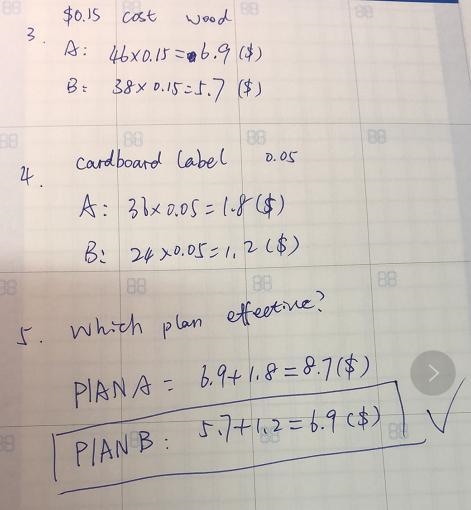 $0.15 cost wood
3.
A: 46×0.15=6.9 ($)
B: 38×0.15=5.7 ($)
4. cardboard label 0.05
A: 36×0.05=1.8 ($)
B: 24×0.05=1.2 ($)
5. Which plan effective?
PlAN A = 6.9+1.8=8.7($)
PlAN B: 5.7+1.2=6.9 ($)